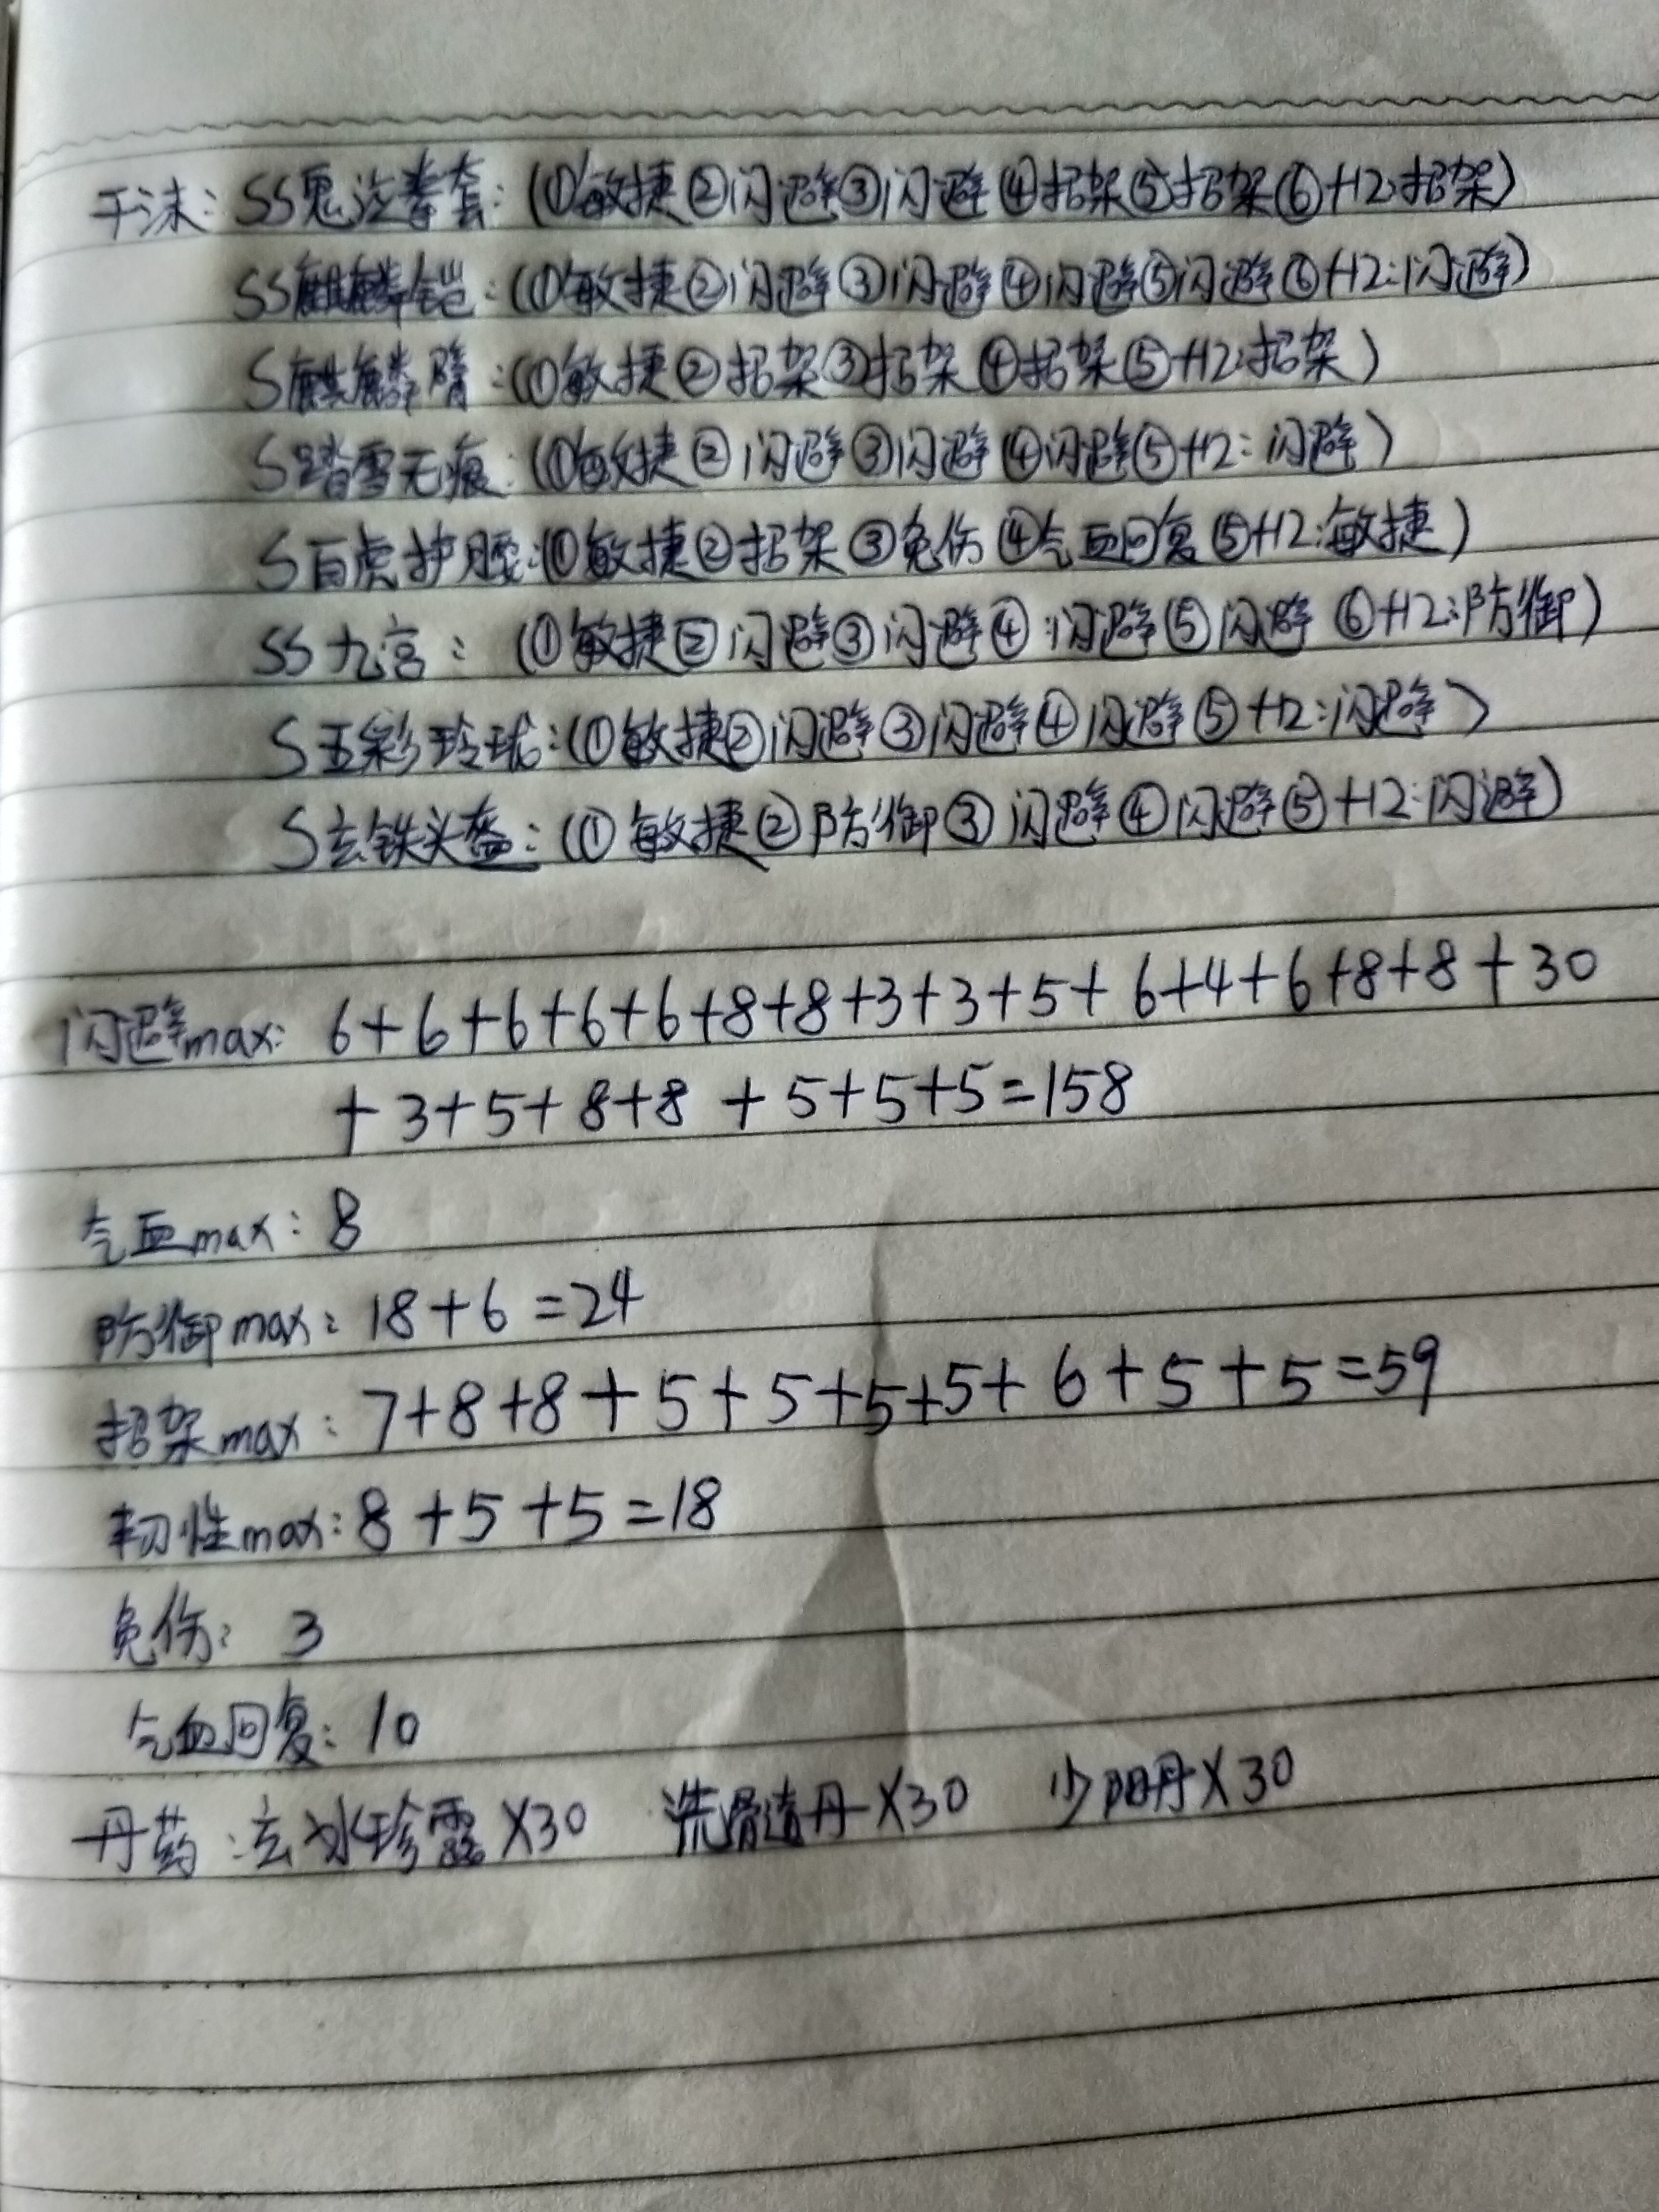 于沫：SS鬼泣拳套：（①敏捷②闪避③闪避④招架⑤招架⑥+12：招架）
SS麒麟铠：（①敏捷②闪避③闪避④闪避⑤闪避⑥+12：闪避）
S麒麟臂：（①敏捷②招架③招架④招架⑤+12：招架）
S踏雪无痕：（①敏捷②闪避③闪避④闪避⑤+12：闪避）
S白虎护腰：（①敏捷②招架③免伤④气血回复⑤+12：敏捷）
SS九宫：（①敏捷②闪避③闪避④闪避⑤闪避⑥+12：防御）
S五彩玲珑：（①敏捷②闪避③闪避④闪避⑤+12：闪避）
S玄铁头盔：（①敏捷②防御③闪避④闪避⑤+12：闪避）
闪避max：6+6+6+6+6+8+8+3+3+5+6+4+6+8+8+30
+3+5+8+8+5+5+5=158
气血max：8
防御max：18+6=24
招架max：7+8+8+5+5+5+5+6+5+5=59
韧性max：8+5+5=18
免伤：3
气血回复：10
丹药：玄冰珍露X30 洗骨造丹X30 少阳丹X30